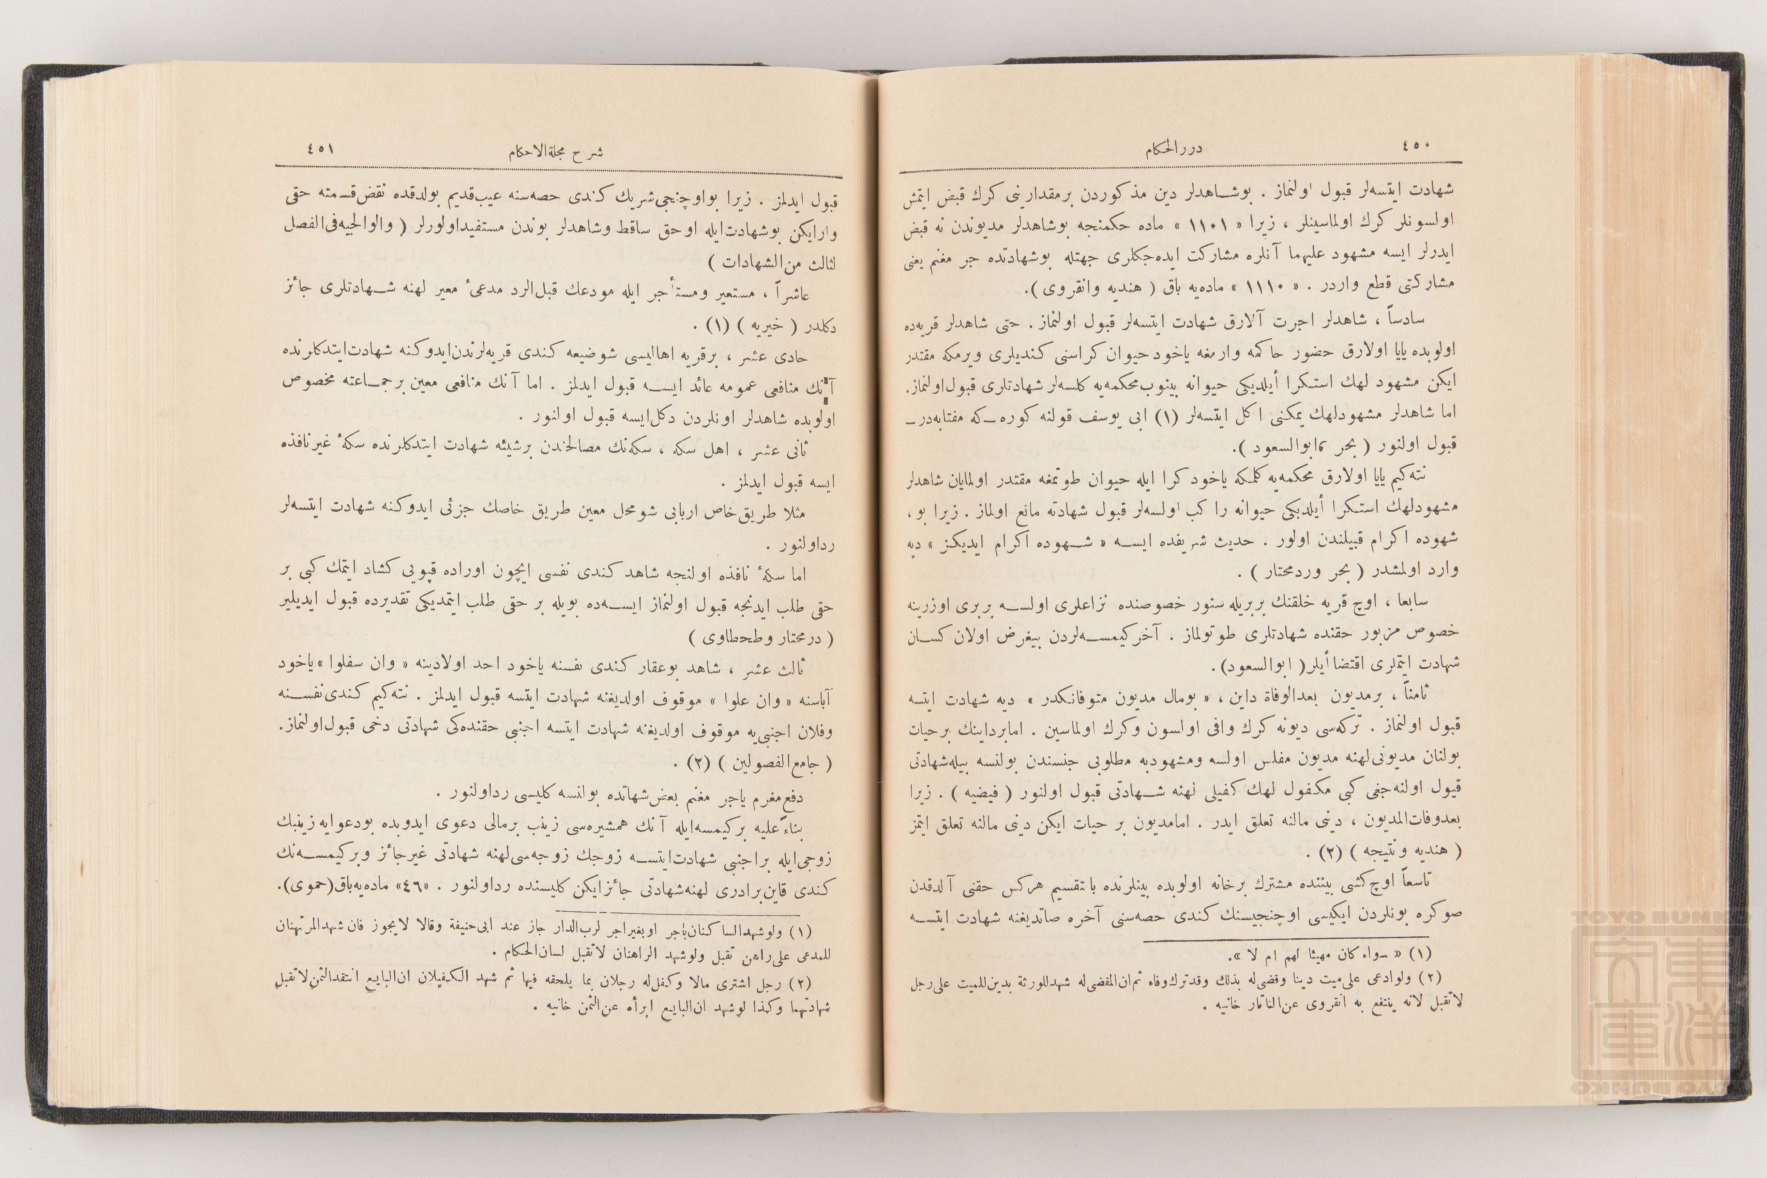 ٤٥٠
دررالحكام
شهادت ايتسه‌لر قبول اولنماز . بوشاهدلر دين مذكوردن برمقدارينى كرك قبض ايتمش
اولسونلر كرك اولماسينلر ، زيرا « ١١٠١ » ماده حكمنجه بوشاهدلر مديوندن نه قبض
ايدرلر ايسه مشهود عليهما آنلره مشاركت ايده‌جكلرى جهتله بوشهادتده جر مغنم يعنى
مشاركتى قطع واردر . « ١١١٠ » ماده‌يه باق ( هنديه وانقروى ).
سادساً ، شاهدلر اجرت آلارق شهادت ايتسه‌لر قبول اولنماز . حتى شاهدلر قريه‌ده
اولوبده يايا اولارق حضور حاكمه وارمغه ياخود حيوان كراسنى كنديلرى ويرمكه مقتدر
ايكن مشهود لهك استكرا أيلديكى حيوانه بينوب محكمه‌يه كلسه‌لر شهادتلرى قبول اولنماز.
اما شاهدلر مشهودلهك يمكنى اكل ايتسه‌لر (١) ابى يوسف قولنه كوره ـ كه مفتابه‌در ـ
قبول اولنور ( بحر ، ابوالسعود ).
نته‌كيم يايا اولارق محكمه‌يه كلمكه ياخود كرا ايله حيوان طوتمغه مقتدر اولمايان شاهدلر
مشهودلهك استكرا أيلديكى حيوانه را كب اولسه‌لر قبول شهادته مانع اولماز . زيرا بو ،
شهوده اكرام قبيلندن اولور . حديث شريفده ايسه « شهوده اكرام ايديكز » ديه
وارد اولمشدر ( بحر وردمحتار ) .
سابعا ، اوچ قريه خلقنك بربريله سنور خصوصنده نزاعلرى اولسه بربرى اوزرينه
خصوص مزبور حقنده شهادتلرى طوتولماز . آخر كيمسه‌لردن بيغرض اولان كسان
شهادت ايتملرى اقتضا أيلر ( ابوالسعود ) .
ثامناً ، برمديون بعدالوفاة داين ، « بومال مديون متوفانكدر » ديه شهادت ايتسه
قبول اولنماز . تركه‌سى ديونه كرك وافى اولسون وكرك اولماسين . امابرداينك برحيات
بولنان مديونى لهنه مديون مفلس اولسه ومشهودبه مطلوبى جنسندن بولنسه بيله شهادتى
قبول اولنه‌جغى كبى مكفول لهك كفيلى لهنه شهادتى قبول اولنور ( فيضيه ) . زيرا
بعدوفات المديون ، دينى مالنه تعلق ايدر . امامديون بر حيات ايكن دينى مالنه تعلق ايتمز
( هنديه ونتيجه ) (٢) .
تاسعاً اوچ كشى بيننده مشترك برخانه اولوبده بينلرنده باتقسيم هركس حقنى آلدقدن
صوكره بونلردن ايكيسى اوچنجيسنك كندى حصه‌سنى آخره صاتديغنه شهادت ايتسه
(١) « سواء كان مهيئا لهم ام لا ».
(٢) ولوادعى على ميت دينا وقضى له بذلك وقدترك وفاء ثم ان المقضى له شهدللورثة بدين للميت على رجل
لاتقبل لانه ينتفع به انقروى عن التاتار خانيه .
شرح مجلةالاحكام
٤٥١
قبول ايدلمز . زيرا بواوچنجى شريك كندى حصه‌سنه عيب قديم بولدقده نقض قسمته حقى
وارايكن بوشهادت ايله اوحق ساقط وشاهدلر بوندن مستفيداولورلر ( والوالجيه فى الفصل
لثالث من الشهادات )
عاشراً ، مستعير ومستأجر ايله مودعك قبل الرد مدعىء معير لهنه شهادتلرى جائز
دكلدر ( خيريه ) (١) .
حادى عشر ، برقريه اهاليسى شوضيعه كندى قريه‌لرندن ايدوكنه شهادت ايتدكلرنده
آنك منافعى عمومه عائد ايسه قبول ايدلمز . اما آنك منافعى معين برجماعته مخصوص
اولوبده شاهدلر اونلردن دكل ايسه قبول اولنور .
ثانى عشر ، اهل سكه ، سكه‌نك مصالحندن برشيئه شهادت ايتدكلرنده سكهٔ غيرنافذه
ايسه قبول ايدلمز .
مثلا طريق خاص اربابى شومحل معين طريق خاصك جزئى ايدوكنه شهادت ايتسه‌لر
رداولنور .
اما سكهٔ نافذه اولنجه شاهد كندى نفسى ايچون اوراده قپويى كشاد ايتمك كبى بر
حقى طلب ايدنجه قبول اولنماز ايسه‌ده بويله بر حقى طلب ايتمديكى تقديرده قبول ايديلير
( درمختار وطحطاوى )
ثالث عشر ، شاهد بوعقار كندى نفسنه ياخود احد اولادينه « وان سفلوا » ياخود
آباسنه « وان علوا » موقوف اولديغنه شهادت ايتسه قبول ايدلمز . نته‌كيم كندى نفسنه
وفلان اجنبى‌يه موقوف اولديغنه شهادت ايتسه اجنبى حقنده‌كى شهادتى دخى قبول اولنماز.
( جامع الفصولين ) (٢) .
دفع مغرم ياجر مغنم بعض شهادتده بولنسه كليسى رداولنور .
بناءً عليه بركيمسه ايله آنك همشيره‌سى زينب برمالى دعوى ايدوبده بودعوايه زينبك
زوجى ايله براجنبى شهادت ايتسه زوجك زوجه‌سى لهنه شهادتى غيرجائز وبركيمسه‌نك
كندى قاين برادرى لهنه شهادتى جائز ايكن كليسنده رداولنور . «٤٦» ماده‌يه باق (حموى).
(١) ولوشهدالساكنان باجر اوبغيراجر لرب الدار جاز عند ابى حنيفة وقالا لايجوز فان شهدالمرتهنان
للمدعى على راهن تقبل ولوشهد الراهنان لاتقبل لسان الحكام .
(٢) رجل اشترى مالا وكفل له رجلان بما يلحقه فيها ثم شهد الكفيلان ان البايع انتقدالثمن لاتقبل
شهادتهما وكذا لوشهد ان البايع ابرأه عن الثمن خانيه .
TOYO BUNKO
東洋文庫